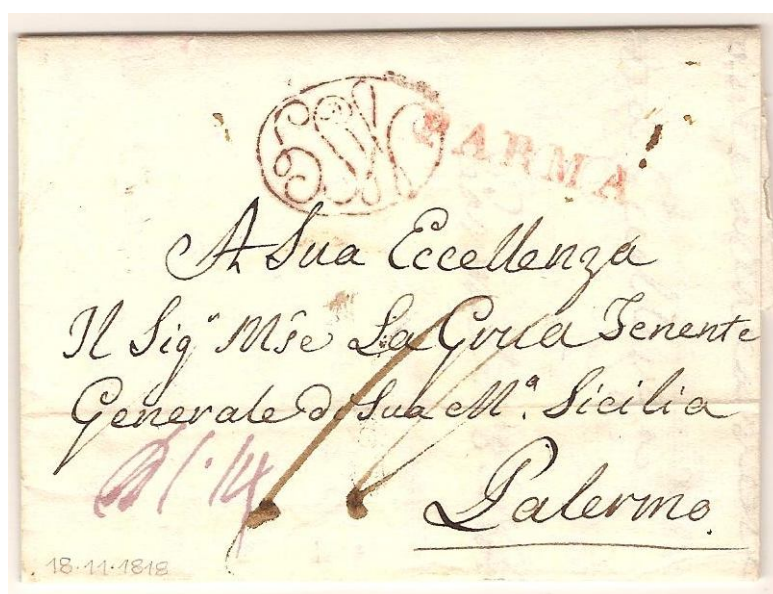 PARMA
A Sua Eccellenza
Il Sigʳ Mse La Grua Tenente
Generale di Sua Mª. Sicilia
Palermo
18.11.1818